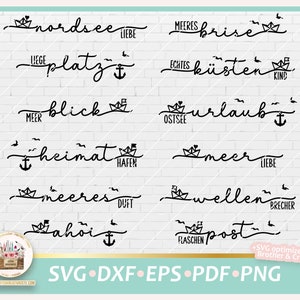 nordsee LIEBE
MEERES brise
LIEGE platz
ECHTES küsten KIND
MEER blick
OSTSEE urlaub
heimat HAFEN
meer LIEBE
meeres DUFT
wellen BRECHER
ahoi
FLASCHEN post
+SVG optimi
Brother &
SVG•DXF•EPS•PDF•PNG